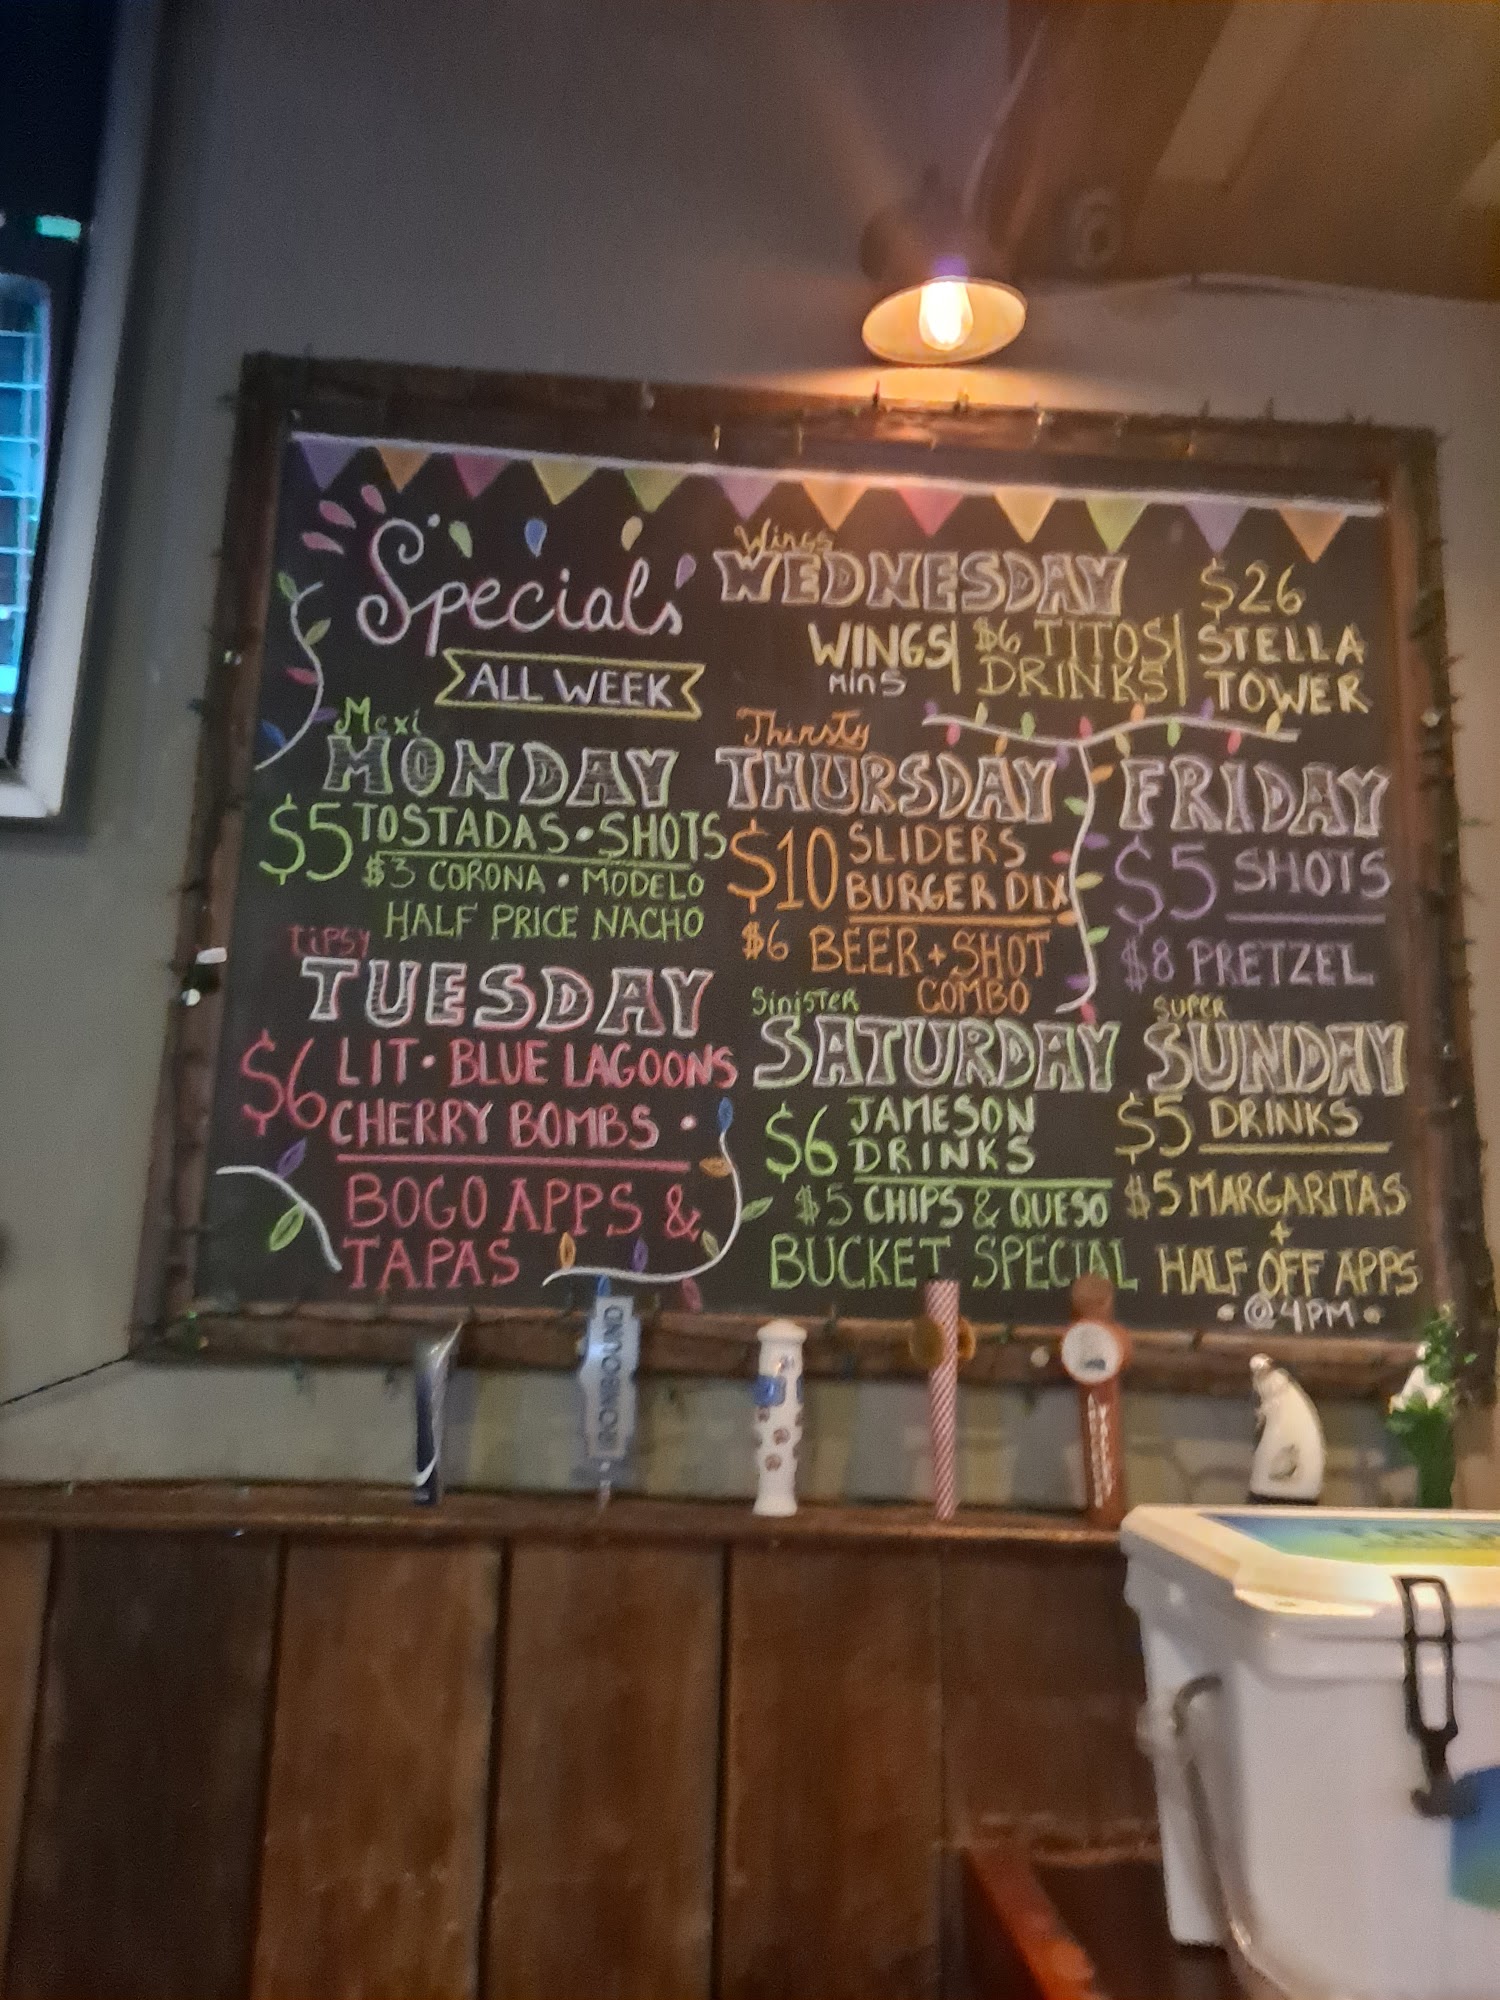 Specials
ALL WEEK
Mexi
MONDAY
$5 TOSTADAS • SHOTS
$3 CORONA • MODELO
HALF PRICE NACHO
TIPSY
TUESDAY
$6 LIT • BLUE LAGOONS
CHERRY BOMBS •
BOGO APPS &
TAPAS
Wings
WEDNESDAY
WINGS
MIN 5
$6 TITOS
DRINKS
$26
STELLA
TOWER
Thirsty
THURSDAY
$10 SLIDERS
BURGER DLX
$6 BEER + SHOT
COMBO
FRIDAY
$5 SHOTS
$8 PRETZEL
SiniSTER
SATURDAY
$6 JAMESON
DRINKS
$5 CHIPS & QUESO
BUCKET SPECIAL
SUPER
SUNDAY
$5 DRINKS
$5 MARGARITAS
+
HALF OFF APPS
• @4PM •
IRONBOUND